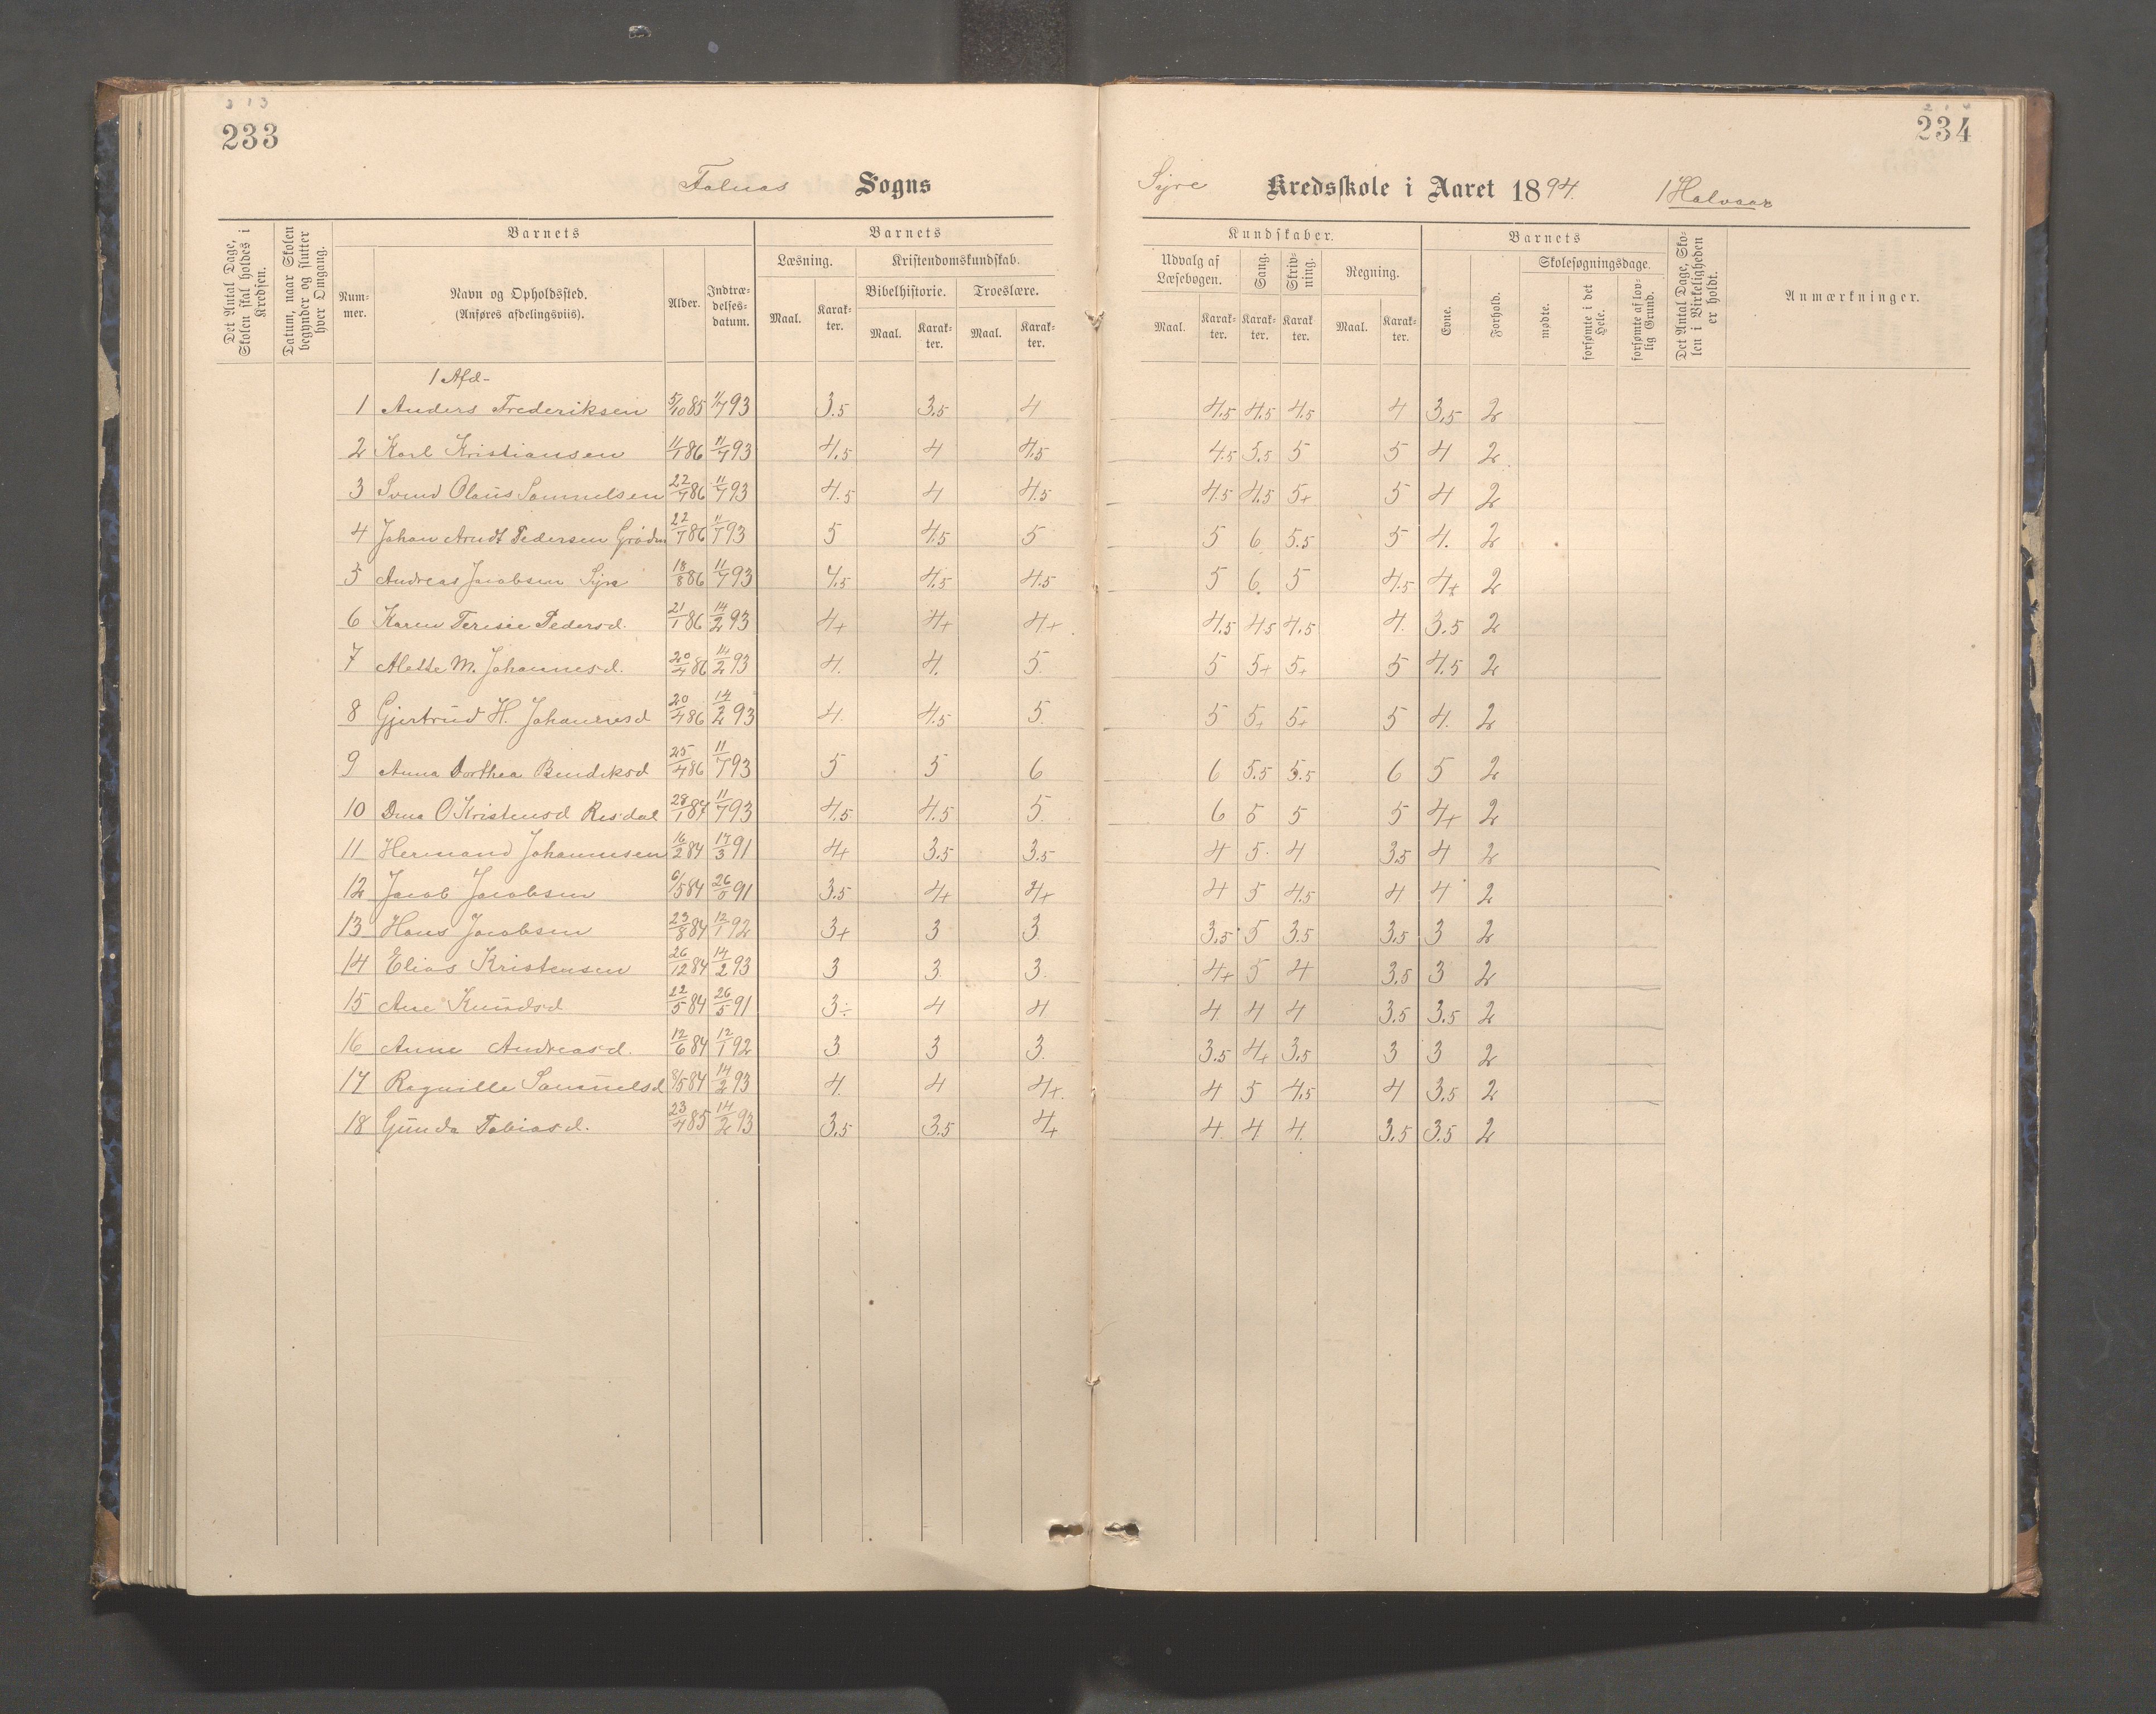 233
Falnes Sogns
Det Antal Dage, Skolen skal holdes i Kredsen.
Datum, naar Skolen begynder og slutter hver Omgang.
Barnets
Num-mer.
Navn og Opholdssted. (Anføres afdelingsviis).
Alder.
Indtræ-delses-datum.
Barnets
Læsning.
Kristendomskundskab.
Bibelhistorie.
Troeslære.
Maal. Karak-ter. Maal. Karak-ter. Maal. Karak-ter.
1 Afd-
1 Anders Frederiksen 5/10 85 93 3.5 3.5 4
2 Karl Kristiansen 11/1 86 11/7 93 4.5 4 4.5
3 Svend Olaus Samuelsen 22/7 86 11/7 93 4.5 4 4.5
4 Johan Arndt Pedersen 22/7 86 11/7 93 5 4.5 5
5 Andreas Jacobsen Syre 18/8 86 11/7 93 4.5 4.5 4.5
6 Karen Teresie Pedersd. 21/1 86 14/2 93 4+ 4+ 4+
7 Alette M. Johannesd. 20/4 86 14/2 93 4. 4. 5.
8 Gjertrud H. Johannesd 20/4 86 14/2 93 4. 4.5 5.
9 Anna Dorthea Bendiksd 25/4 86 11/7 93 5 5 6
10 Dina O Kristensd Risdal 28/1 87 11/7 93 4.5 4.5 5.
11 Hermand Johannesen 16/2 84 17/3 91 4+ 3.5 3.5
12 Jacob Jacobsen 6/5 84 26/5 91 3.5 4+ 4+
13 Hans Jacobsen 23/8 84 12/1 92 3+ 3 3
14 Elias Kristensen 26/12 84 14/2 93 3 3. 3.
15 Ane Knudsd 22/5 84 26/5 91 3÷ 4 4
16 Anne Andreasd. 12/6 84 12/1 92 3 3 3.
17 Ragnille Samuelsd 8/5 84 14/2 93 4. 4 4+.
18 Gunda Tobiasd. 23/4 85 14/2 93 3.5 3.5 4+
234
Syre Kredsskole i Aaret 1894. 1 Halvaar
Kundskaber.
Udvalg af Læsebogen.
Sang.
Skriv-ning.
Regning.
Maal. Karak-ter. Karak-ter. Karak ter. Maal. Karak-ter.
Barnets
Evne.
Forhold.
Skolesøgningsdage.
mødte.
forsømte i det Hele.
forsømte af lov-lig Grund.
Det Antal Dage, Sko-len i Virkeligheden er holdt.
Anmærkninger.
4.5 4.5 4.5 4 3.5 2
4.5 3.5 5 5 4 2
4.5 4.5 5+ 5 4 2
5 6 5.5 5 4. 2
5 6. 5 4.5 4+ 2
4.5 4.5 4.5 4. 3.5 2
5 5+ 5+ 5 4.5 2
5 5+ 5+ 5 4. 2
6 5.5 5.5 6 5 2
6 5 5 5 4+ 2
4 5. 4 3.5 4 2
4 5 4.5 4 4 2
3.5 5 3.5 3.5 3 2
4+ 5 4 3.5 3 2
4 4 4 3.5 3.5 2
3.5 4+ 3.5 3 3 2
4 5 4.5 4 3.5 2
4. 4 4. 3.5 3.5 2